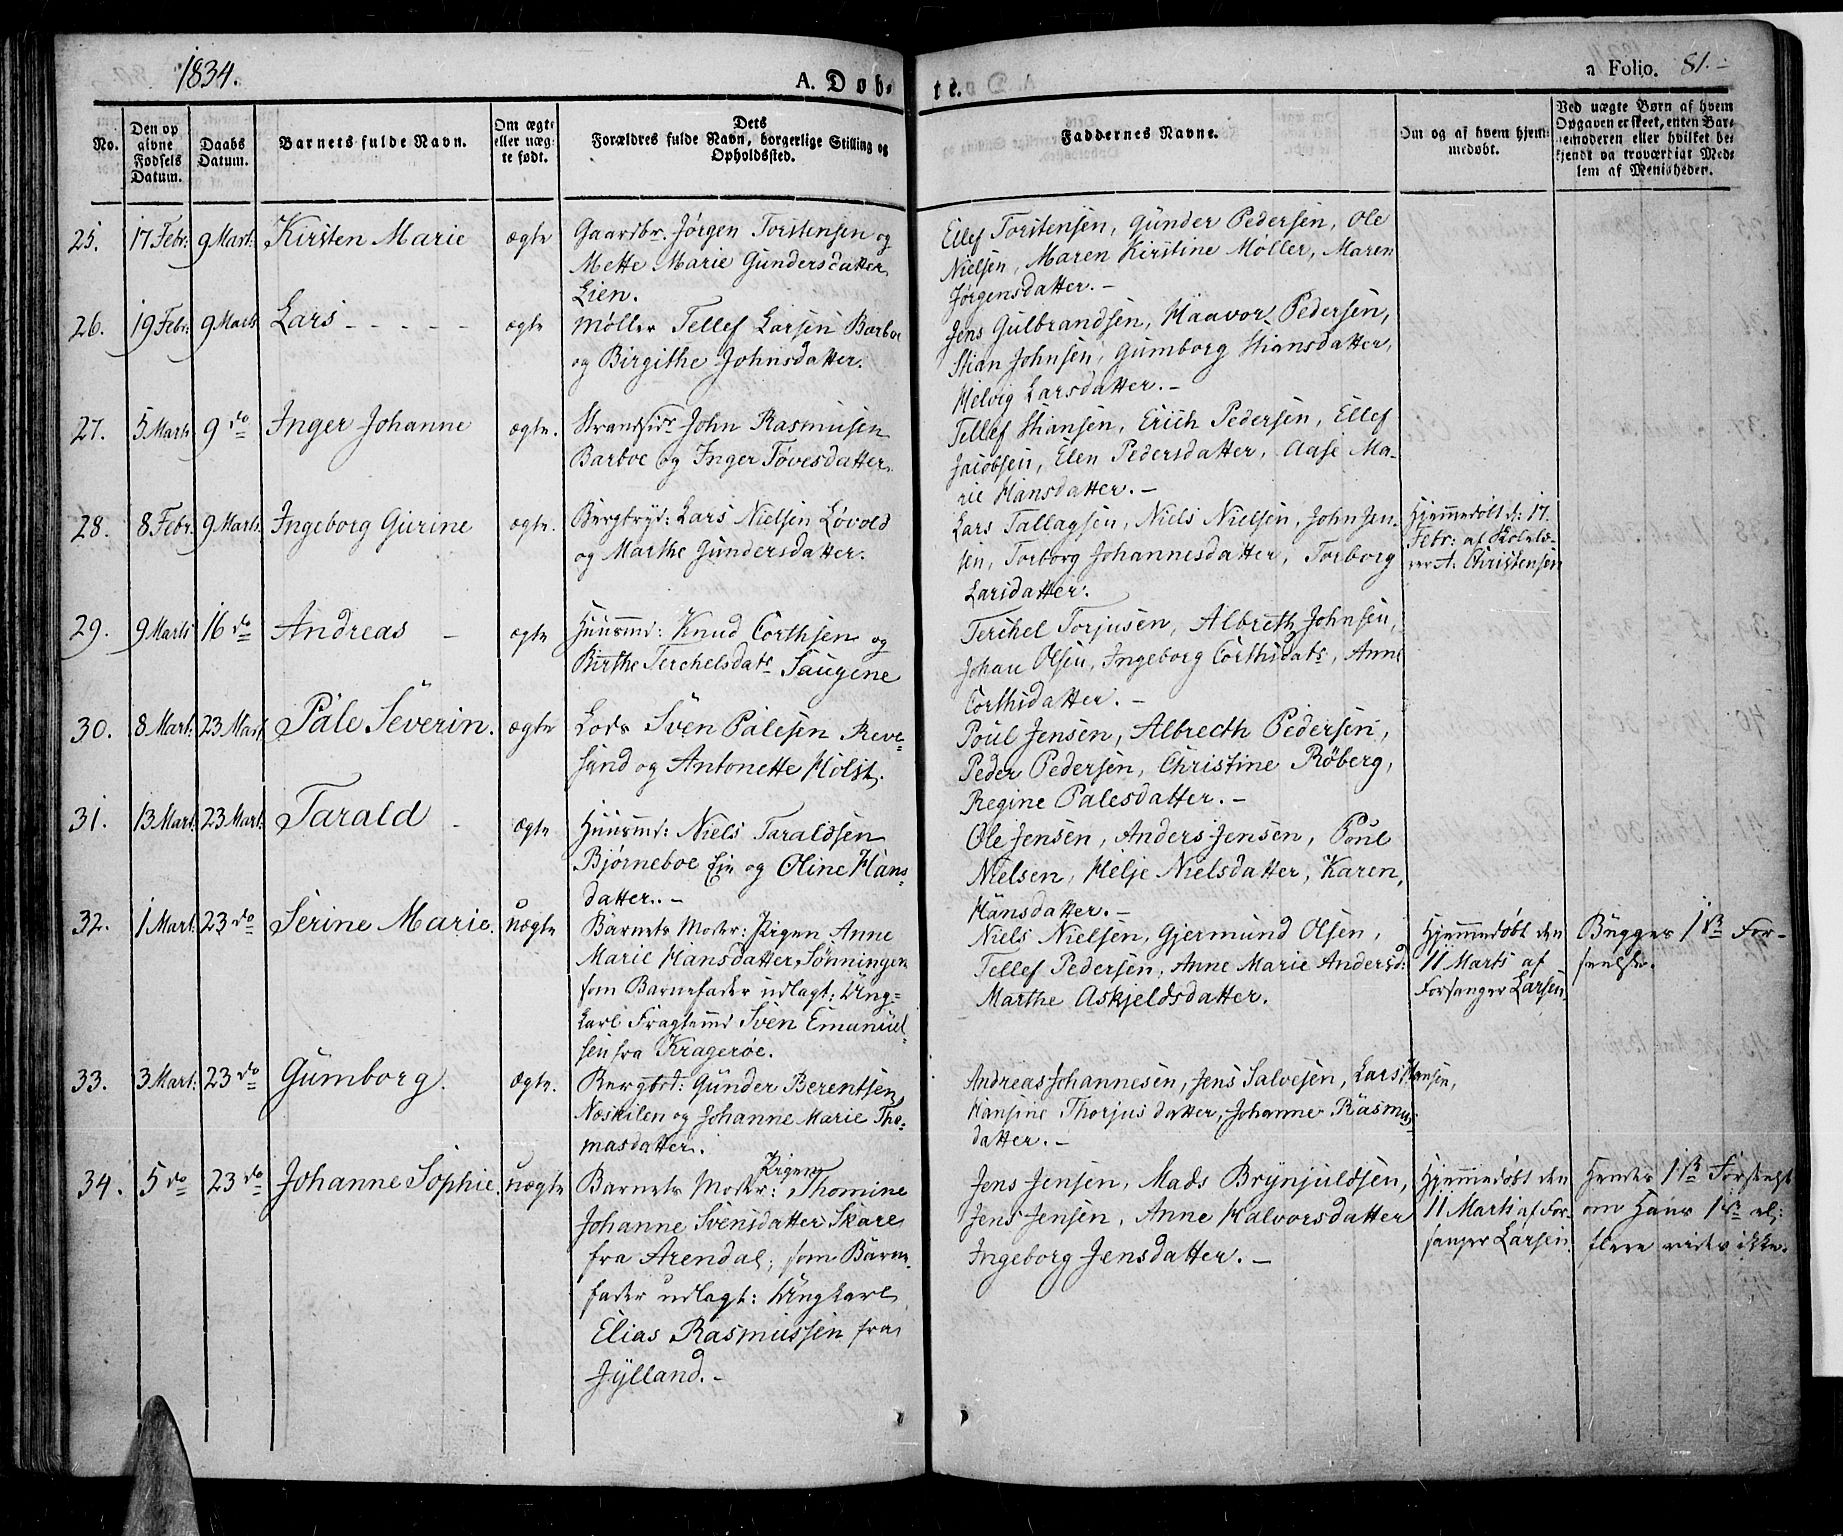 1834.
A. Døb-
te.
a Folio. 81.
No.
Den op
givne
Fødsels
Datum.
Daabs
Datum.
Barnets fulde Navn.
Om ægte
eller uæg-
te født.
Dets
Forældres fulde Navn, borgerlige Stilling og
Opholdssted.
Faddernes Navne.
Om og af hvem hjem-
medøbt.
Ved uægte Børn af hvem
Opgaven er skeet, enten Bar-
nemoderen eller hvilket be-
kjendt og troværdigt Med-
lem af Menigheden.
25. 17 Febr: 9 Mart: Kirsten Marie ægte Gaardbr. Jørgen Torstensen og
Mette Marie Gundersdatter
Lien.
Ellef Torstensen, Gunder Pedersen, Ole
Nielsen, Maren Kirstine Møller, Maren
Jørgensdatter. -
26. 19 Febr: 9 Marts Lars - - - - - ægte Møller Tellef Larsen Barboe
og Birgithe Johnsdatter.
Jens Gulbrandsen, Haavor Pedersen,
Stian Johnsen, Gumborg Stiansdatter,
Helvig Larsdatter. -
27. 5 Marts 9 do Inger Johanne ægte. Strandsidr John Rasmusen
Barboe og Inger Tovesdatter.
Tellef Stiansen, Erich Pedersen, Ellef
Jacobsen, Elen Pedersdatter, Aase Ma-
rie Hansdatter. -
28. 8 Febr: 9 Marts Ingeborg Gurine ægte. Bergbryd: Lars Nielsen Løvold
og Marthe Gundersdatter.
Lars Tallagsen, Niels Nielsen, John Jen-
sen, Torborg Johannesdatter, Torborg
Larsdatter.
Hjemmedøbt d: 17.
Febr: af Skolelæ-
rer A: Christensen
29. 9 Marts 16 do Andreas - ægte Huusmd: Knud Corthsen og
Birthe Terchelsdatr Saugene
Terchel Torjusen, Albreth Johnsen,
Johan Olsen, Ingeborg Corthsdatr, Anne
Corthsdatter. -
30. 8 Mart: 23 Mart Pale Severin. ægte Lods Sven Palesen Reve-
sand og Antonette Holst.
Poul Jensen, Albrecth Pedersen,
Peder Pedersen, Christine Röberg,
Regine Palesdatter. -
31. 13 Mart: 23 Mart: Tarald - ægte Huusmd: Niels Taraldsen
Bjørneboe Eie og Oline Hans-
datter. -
Ole Jensen, Anders Jensen, Poul
Nielsen, Helje Nielsdatter, Karen
Hansdatter. -
32. 1 Mart: 23 do Serine Marie. uægte Barnets Moder: Pigen Anne
Marie Hansdatter Sønningen
som Barnefader udlagt: Ung-
karl Fragtemd Sven Emanuel-
sen fra Kragerøe.
Niels Nielsen, Gjermund Olsen,
Tellef Pedersen, Anne Marie Andersd:
Marthe Askjeldsdatter.
Hjemmedøbt den
11 Marts af
Forsanger Larsen
Begges 1ste For-
seelse.
33. 3 Mart: 23 do Gumborg. Ægte. Bergbrd: Gunder Berentsen
Næskilen og Johanne Marie Tho-
masdatter.
Andreas Johannesen, Jens Salvesen, Lars Hansen,
Hansine Thorjusdatter, Johanne Rasmus-
datter. -
34. 5 do 23 do Johanne Sophie. uægte Barnets Moder: Pigen Thomine
Johanne Svensdatter Skare
fra Arendal; som Barne-
fader udlagt: Ungkarl
Elias Rasmussen fra
Jylland. -
Jens Jensen, Mads Brynjuldsen,
Jens Jensen, Anne Halvorsdatter
Ingeborg Jensdatter. -
Hjemmedøbt den
11 Marts af For-
sanger Larsen.
Hendes 1ste Forseelse
om Hans 1ste el:
flere vides ikke.